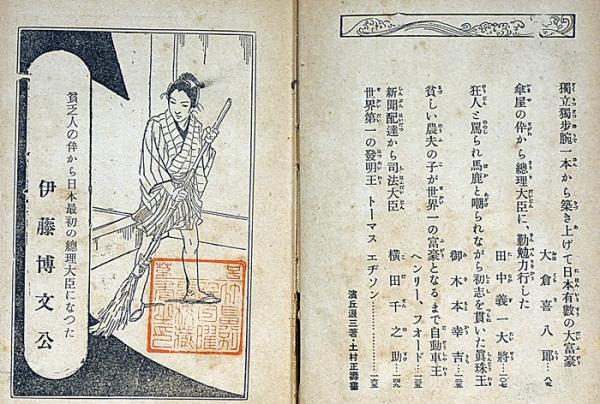 獨立獨步腕一本から築き上げて日本有數の大富豪
大倉喜八郎…八五
傘屋の伜から總理大臣に、勤勉力行した
田中義一大將…一〇七
狂人と罵られ馬鹿と嘲られながら初志を貫いた眞珠王
御木本幸吉…一三五
貧しい農夫の子が世界一の富豪となるまで自動車王
ヘンリー、フォード…一三五
新聞配達から司法大臣
横田千之助…一四九
世界第一の發明王 トーマス エヂソン…一六五
濱丘浪三著・土村正壽畫
貧乏人の伜から日本最初の總理大臣になつた
伊藤博文公